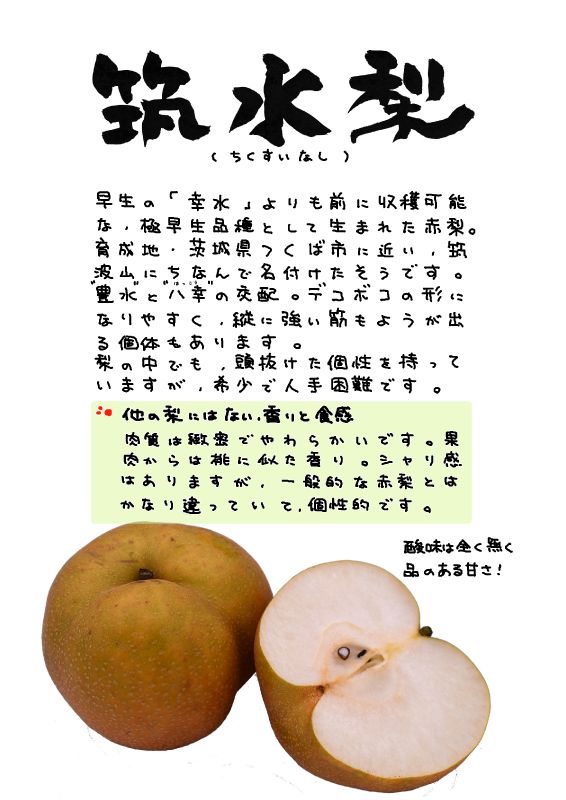 筑水梨
(ちくすいなし)
早生の「幸水」よりも前に収穫可能
な、極早生品種として生まれた赤梨。
育成地・茨城県つくば市に近い、筑
波山にちなんで名付けたそうです。
"豊水"と"八幸"の交配。デコボコの形に
なりやすく、縦に強い筋もようが出
る個体もあります。
梨の中でも、頭抜けた個性を持って
いますが、希少で入手困難です。
他の梨にはない、香りと食感
肉質は緻密でやわらかいです。果
肉からは桃に似た香り。シャリ感
はありますが、一般的な赤梨とは
かなり違っていて、個性的です。
酸味は全く無く
品のある甘さ!